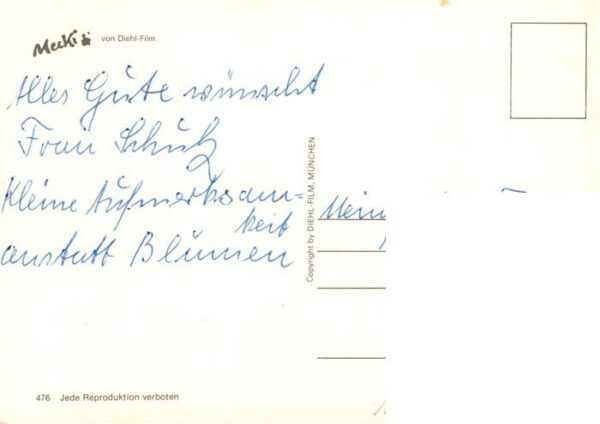 Mecki von Diehl-Film
Alles Gute wünscht
Frau Schulz
Kleine Aufmerksam-
keit
anstatt Blumen
Copyright by DIEHL-FILM, MÜNCHEN
Mein
476 Jede Reproduktion verboten